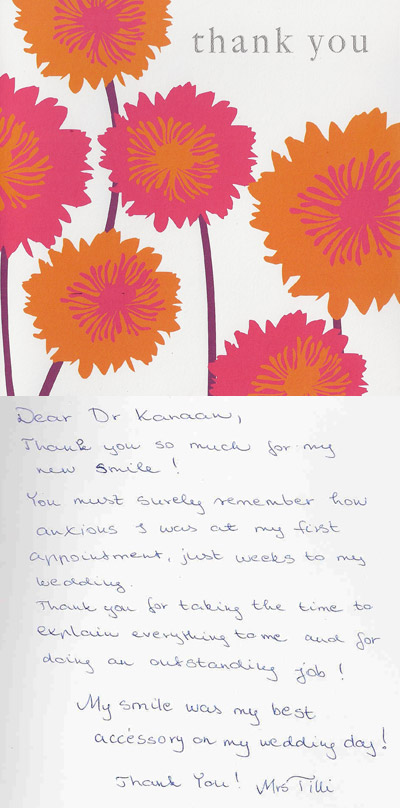 thank you
Dear Dr Kanaan,
Thank you so much for my
new smile!
You must surely remember how
anxious I was at my first
appointment, just weeks to my
wedding.
Thank you for taking the time to
explain everything to me and for
doing an outstanding job!
My smile was my best
accessory on my wedding day!
Thank You! Mrs Tilli